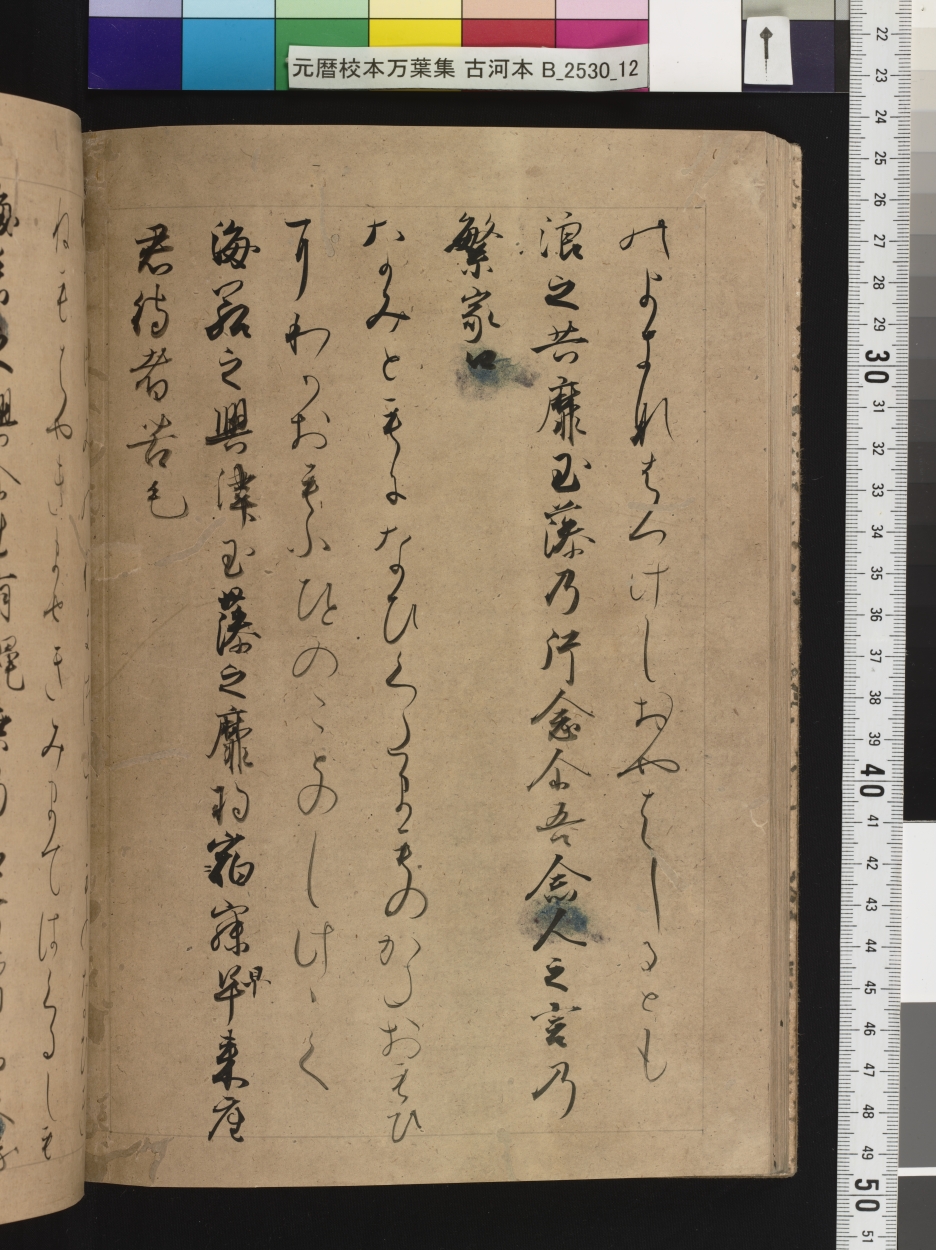 なはつけしおやはしるとも
浪之共靡玉藻乃片念尓吾念人之言乃
繁家口
なみともになひくたまものかたおもひ
にわかおもふひとのことのしけゝく
海若之興津玉藻之靡将宿寐早来座
早
君待者苦毛
はやきませきみまてはくるしも
元暦校本万葉集 古河本 B_2530_12
22
23
24
25
26
27
28
29
30
31
32
33
34
35
36
37
38
39
40
41
42
43
44
45
46
47
48
49
50
51